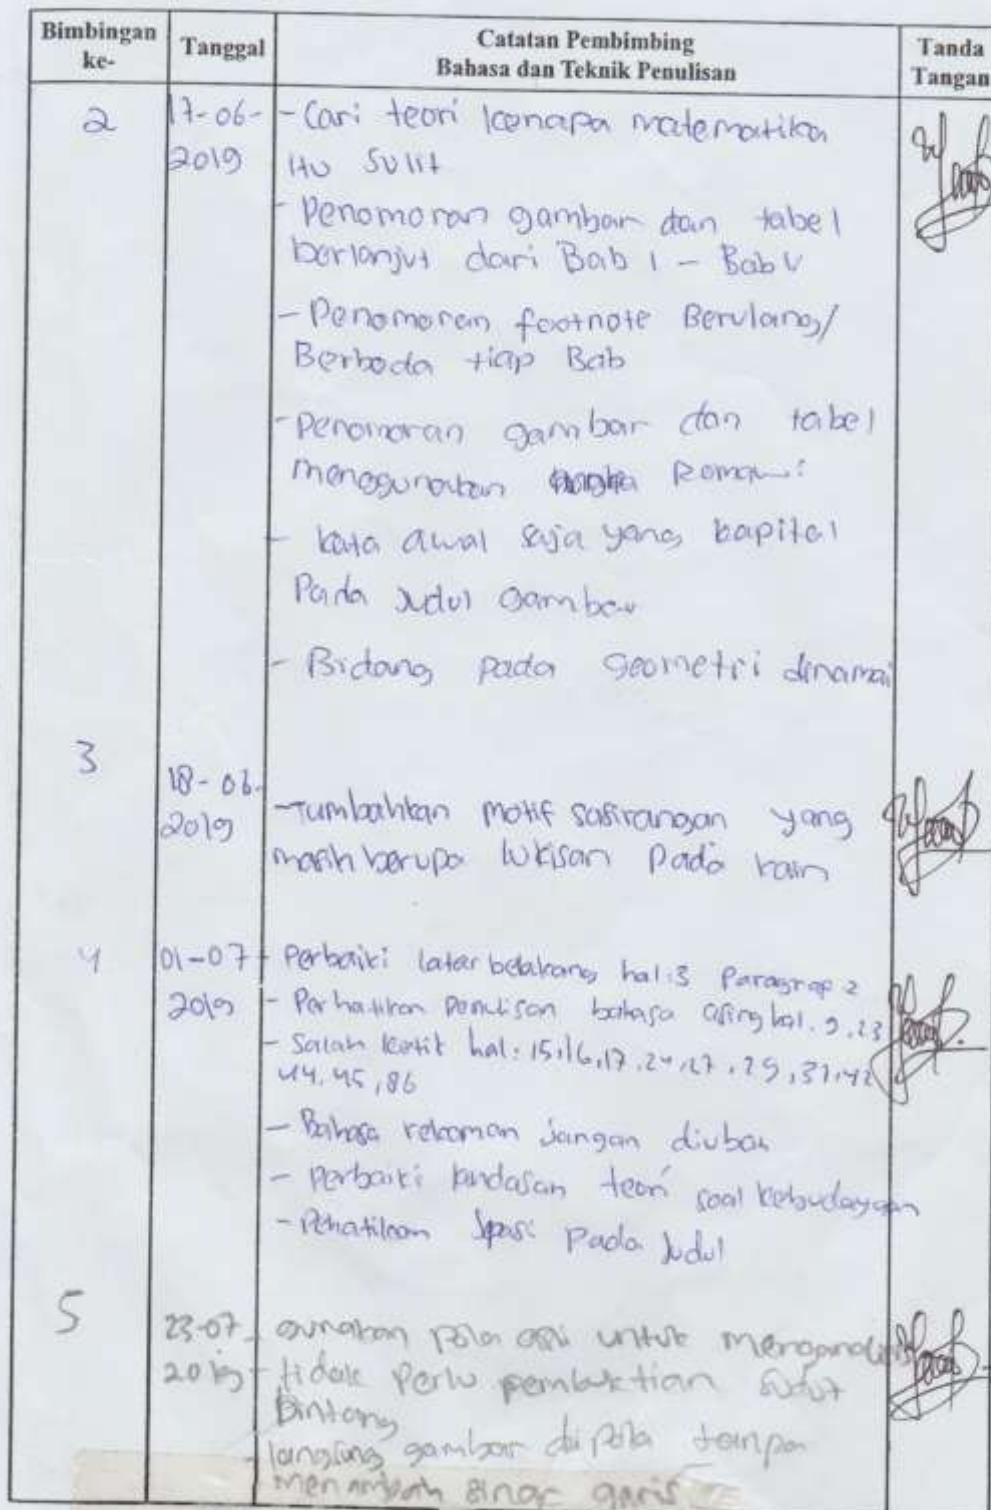 Bimbingan ke- Tanggal Catatan Pembimbing Bahasa dan Teknik Penulisan Tanda Tangan
2 17-06-2019 - Cari teori kenapa matematika
itu sulit
- Penomoran gambar dan tabel
berlanjut dari Bab I - Bab V
- Penomoran footnote Berulang/
Berbeda tiap Bab
- Penomoran gambar dan tabel
menggunakan Romawi
- kata awal saja yang kapital
Pada Judul Gambar
- Bidang pada geometri dinamai
3 18-06-2019 - Tumbahkan motif sasirangan yang
masih berupa lukisan pada kain
4 01-07-2019 - Perbaiki latar belakang hal:3 Paragrap 2
- Perhatikan penulisan bahasa asing hal. 9, 23
- Salah ketik hal: 15,16,17,24,27,29,37,42
44,45,86
- Bahasa rekaman jangan diubah
- Perbaiki landasan teori soal kebudayaan
- Pehatikan Spasi Pada Judul
5 23-07-2019 - gunakan pola asli untuk menganalisis
- tidak Perlu pembuktian sudut
Bintang
- langsung gambar di pola tanpa
menambah sinar garis